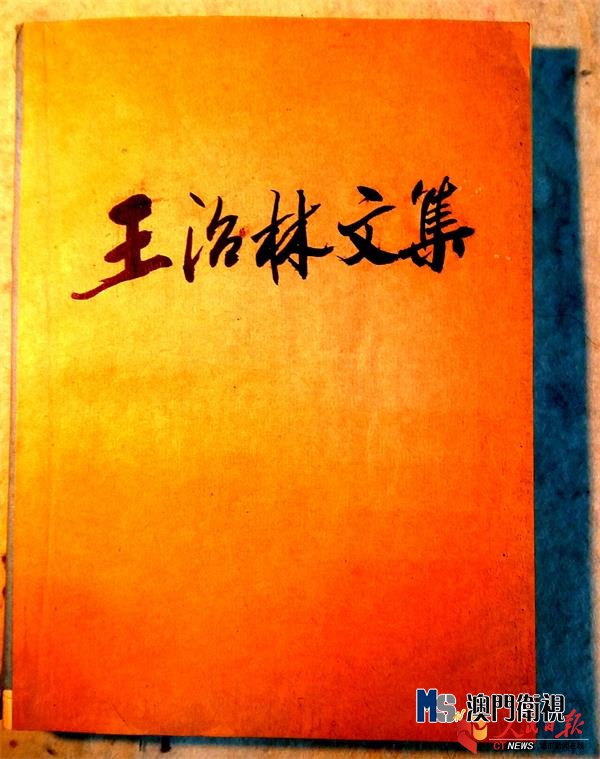 王治林文集
MS 澳門衛視
人民日报
CT NEWS